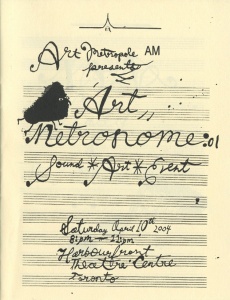 Art Metropole AM
presents
"Art
Metronome:01
Sound * Art * Event
Saturday April 10th 2004
8pm - 11pm
Harbourfront
Theatre Centre
Toronto